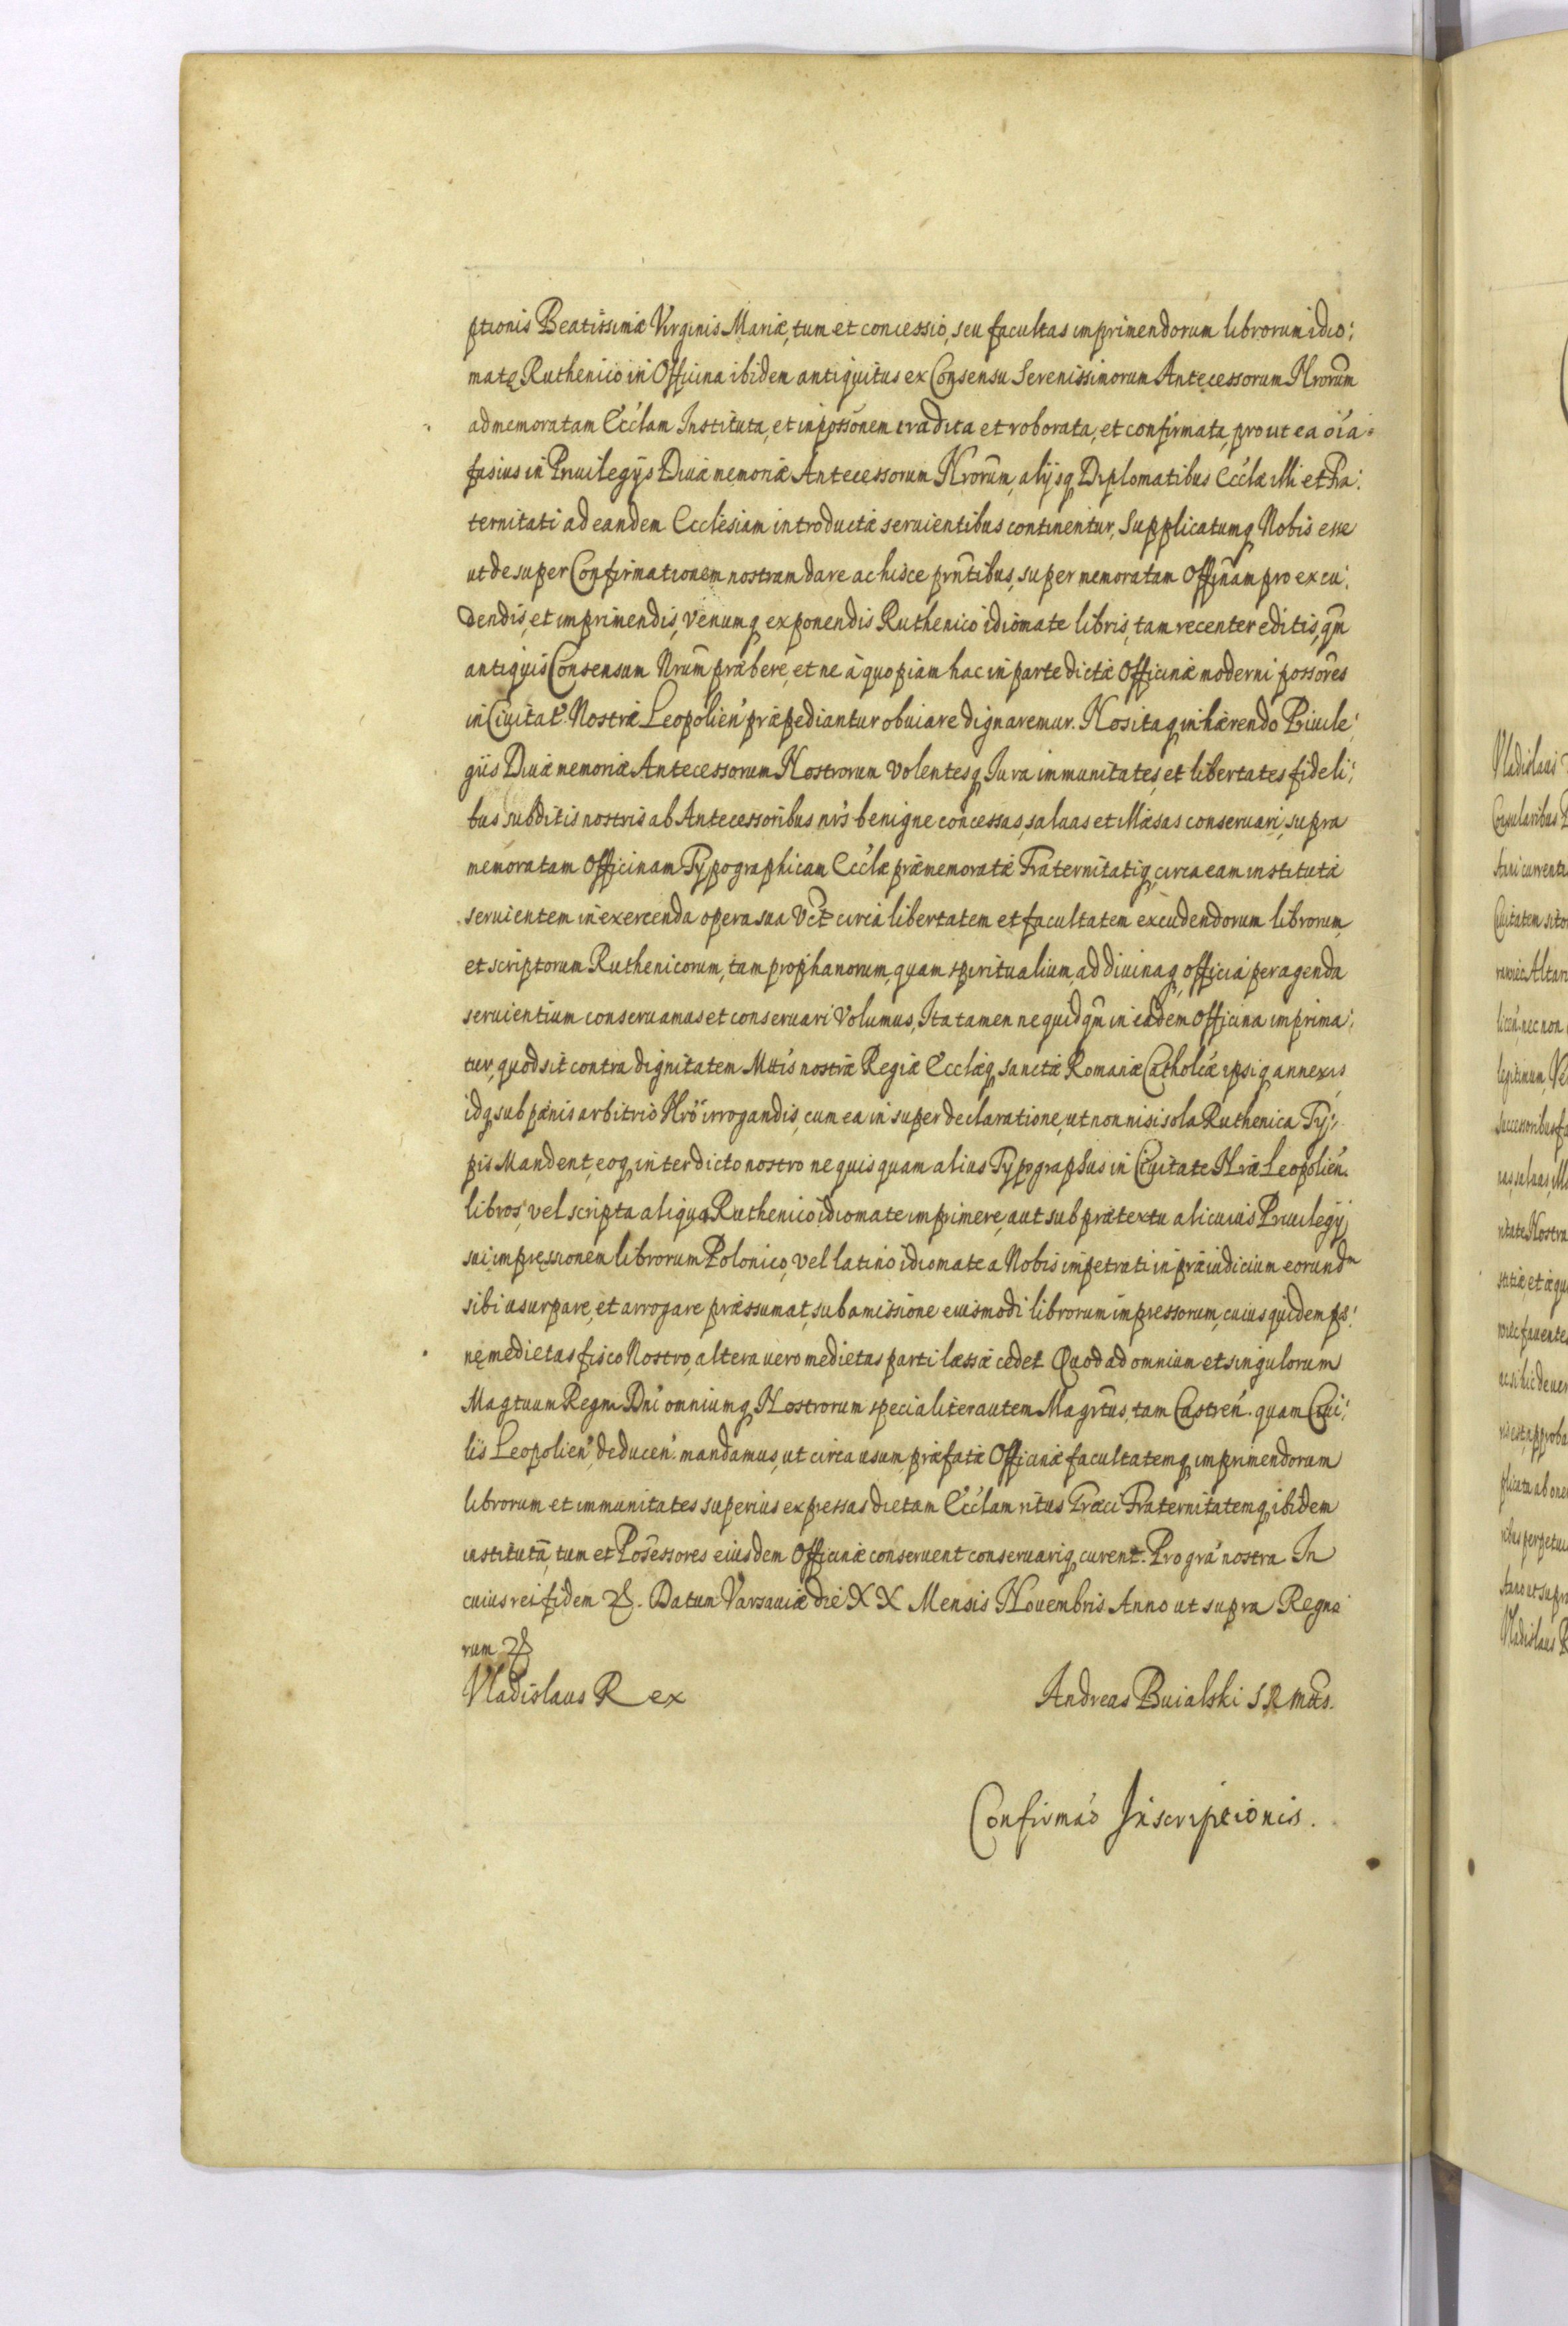 ptionis Beatissimæ Virginis Mariæ, tum et concessio, seu facultas imprimendorum librorum idio:
mate Ruthenico in Officina ibidem antiquitus ex Consensu Serenissimorum Antecessorum Nrorum
ad memoratam Eccłam Instituta, et in possonem tradita et roborata, et confirmata, prout ea oía
fusius in Priuilegijs Diuæ memoriæ Antecessorum Nrorum, alijsq Diplomatibus Eccłæ illi et Fra:
ternitati ad eandem Ecclesiam introductæ seruientibus continentur, Supplicatumq Nobis esse
ut desuper Confirmationem nostram dare ac hisce prntibus, super memoratam Offinam pro excu:
dendis, et imprimendis, venumq exponendis Ruthenico idiomate libris, tam recenter editis, qm
antiquis Consensum Nrum præbere, et ne à quopiam hac in parte dictæ Officinæ moderni possores
in Ciuitat' Nostræ Leopolien' præpediantur obuiare dignaremur. Nos itaq inhærendo Priuile:
giis Diuæ memoriæ Antecessorum Nostrorum volentesq Iura immunitates, et libertates fideli:
bus subditis nostris ab Antecessoribus nrs benigne concessas, saluas et illæsas conseruari, supra
memoratam Officinam Typographicam Eccłæ præmemoratæ Fraternitatiq circa eam institutæ
seruientem in exercenda opera sua vct circa libertatem et facultatem excudendorum librorum,
et scriptorum Ruthenicorum, tam prophanorum, quam spiritualium, ad diuinaq officia peragenda
seruientium conseruamus et conseruari Volumus, Ita tamen ne quidqm in eadem Officina imprima:
tur, quod sit contra dignitatem Mttis nostræ Regiæ Eccłæq sanctæ Romanæ Catholcæ ipsiq annexis
idq sub pænis arbitrio Nro irrogandis, cum ea insuper declaratione, ut non nisi sola Ruthenica Ty:
pis Mandent, eoq interdicto nostro ne quisquam alius Typographus in Ciuitate Nræ Leopolien.
libros, vel scripta aliqua Ruthenico idiomate imprimere, aut sub prætextu alicuius Priuilegij
sui impressionem librorum Polonico, vel latino idiomate a Nobis impetrati in præiudicium eorundm
sibi usurpare, et arrogare præssumat, sub amissione eiusmodi librorum impressorum, cuius quidem pæ:
nę medietas fisco Nostro, altera uero medietas parti læssæ cedet. Quod ad omnium et singulorum
Magtuum Regni Dni' omniumq Nostrorum specialiter autem Magrtus, tam Castren'. quam Ciui:
lis Leopolien', deducen'. mandamus, ut circa usum præfatæ Officinæ facultatemq imprimendorum
librorum et immunitates superius expressas dictam Eccłam ritus Græci Fraternitatemq ibidem
institutā, tum et Possessores eiusdem Officinæ conseruent conseruariq curent. Pro gra' nostra In
cuius rei fidem &. Datum Varsauiæ die XX Mensis Nouembris Anno ut supra Regno
rum &
Vladislaus Rex Andreas Buialski SR Mtts.
Confirmao Inscriptionis.